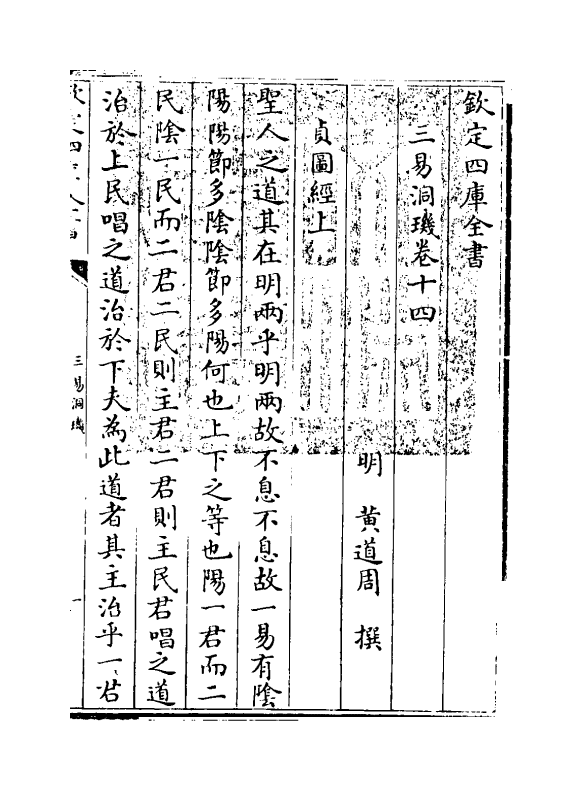 欽定四庫全書
三易洞璣卷十四
明 黃道周 撰
貞圖經上
聖人之道其在明兩乎明兩故不息不息故一易有陰
陽陽節多陰陰節多陽何也上下之等也陽一君而二
民陰一民而二君二民則主君二君則主民君唱之道
治於上民唱之道治於下夫為此道者其主治乎一君
三易洞璣
一